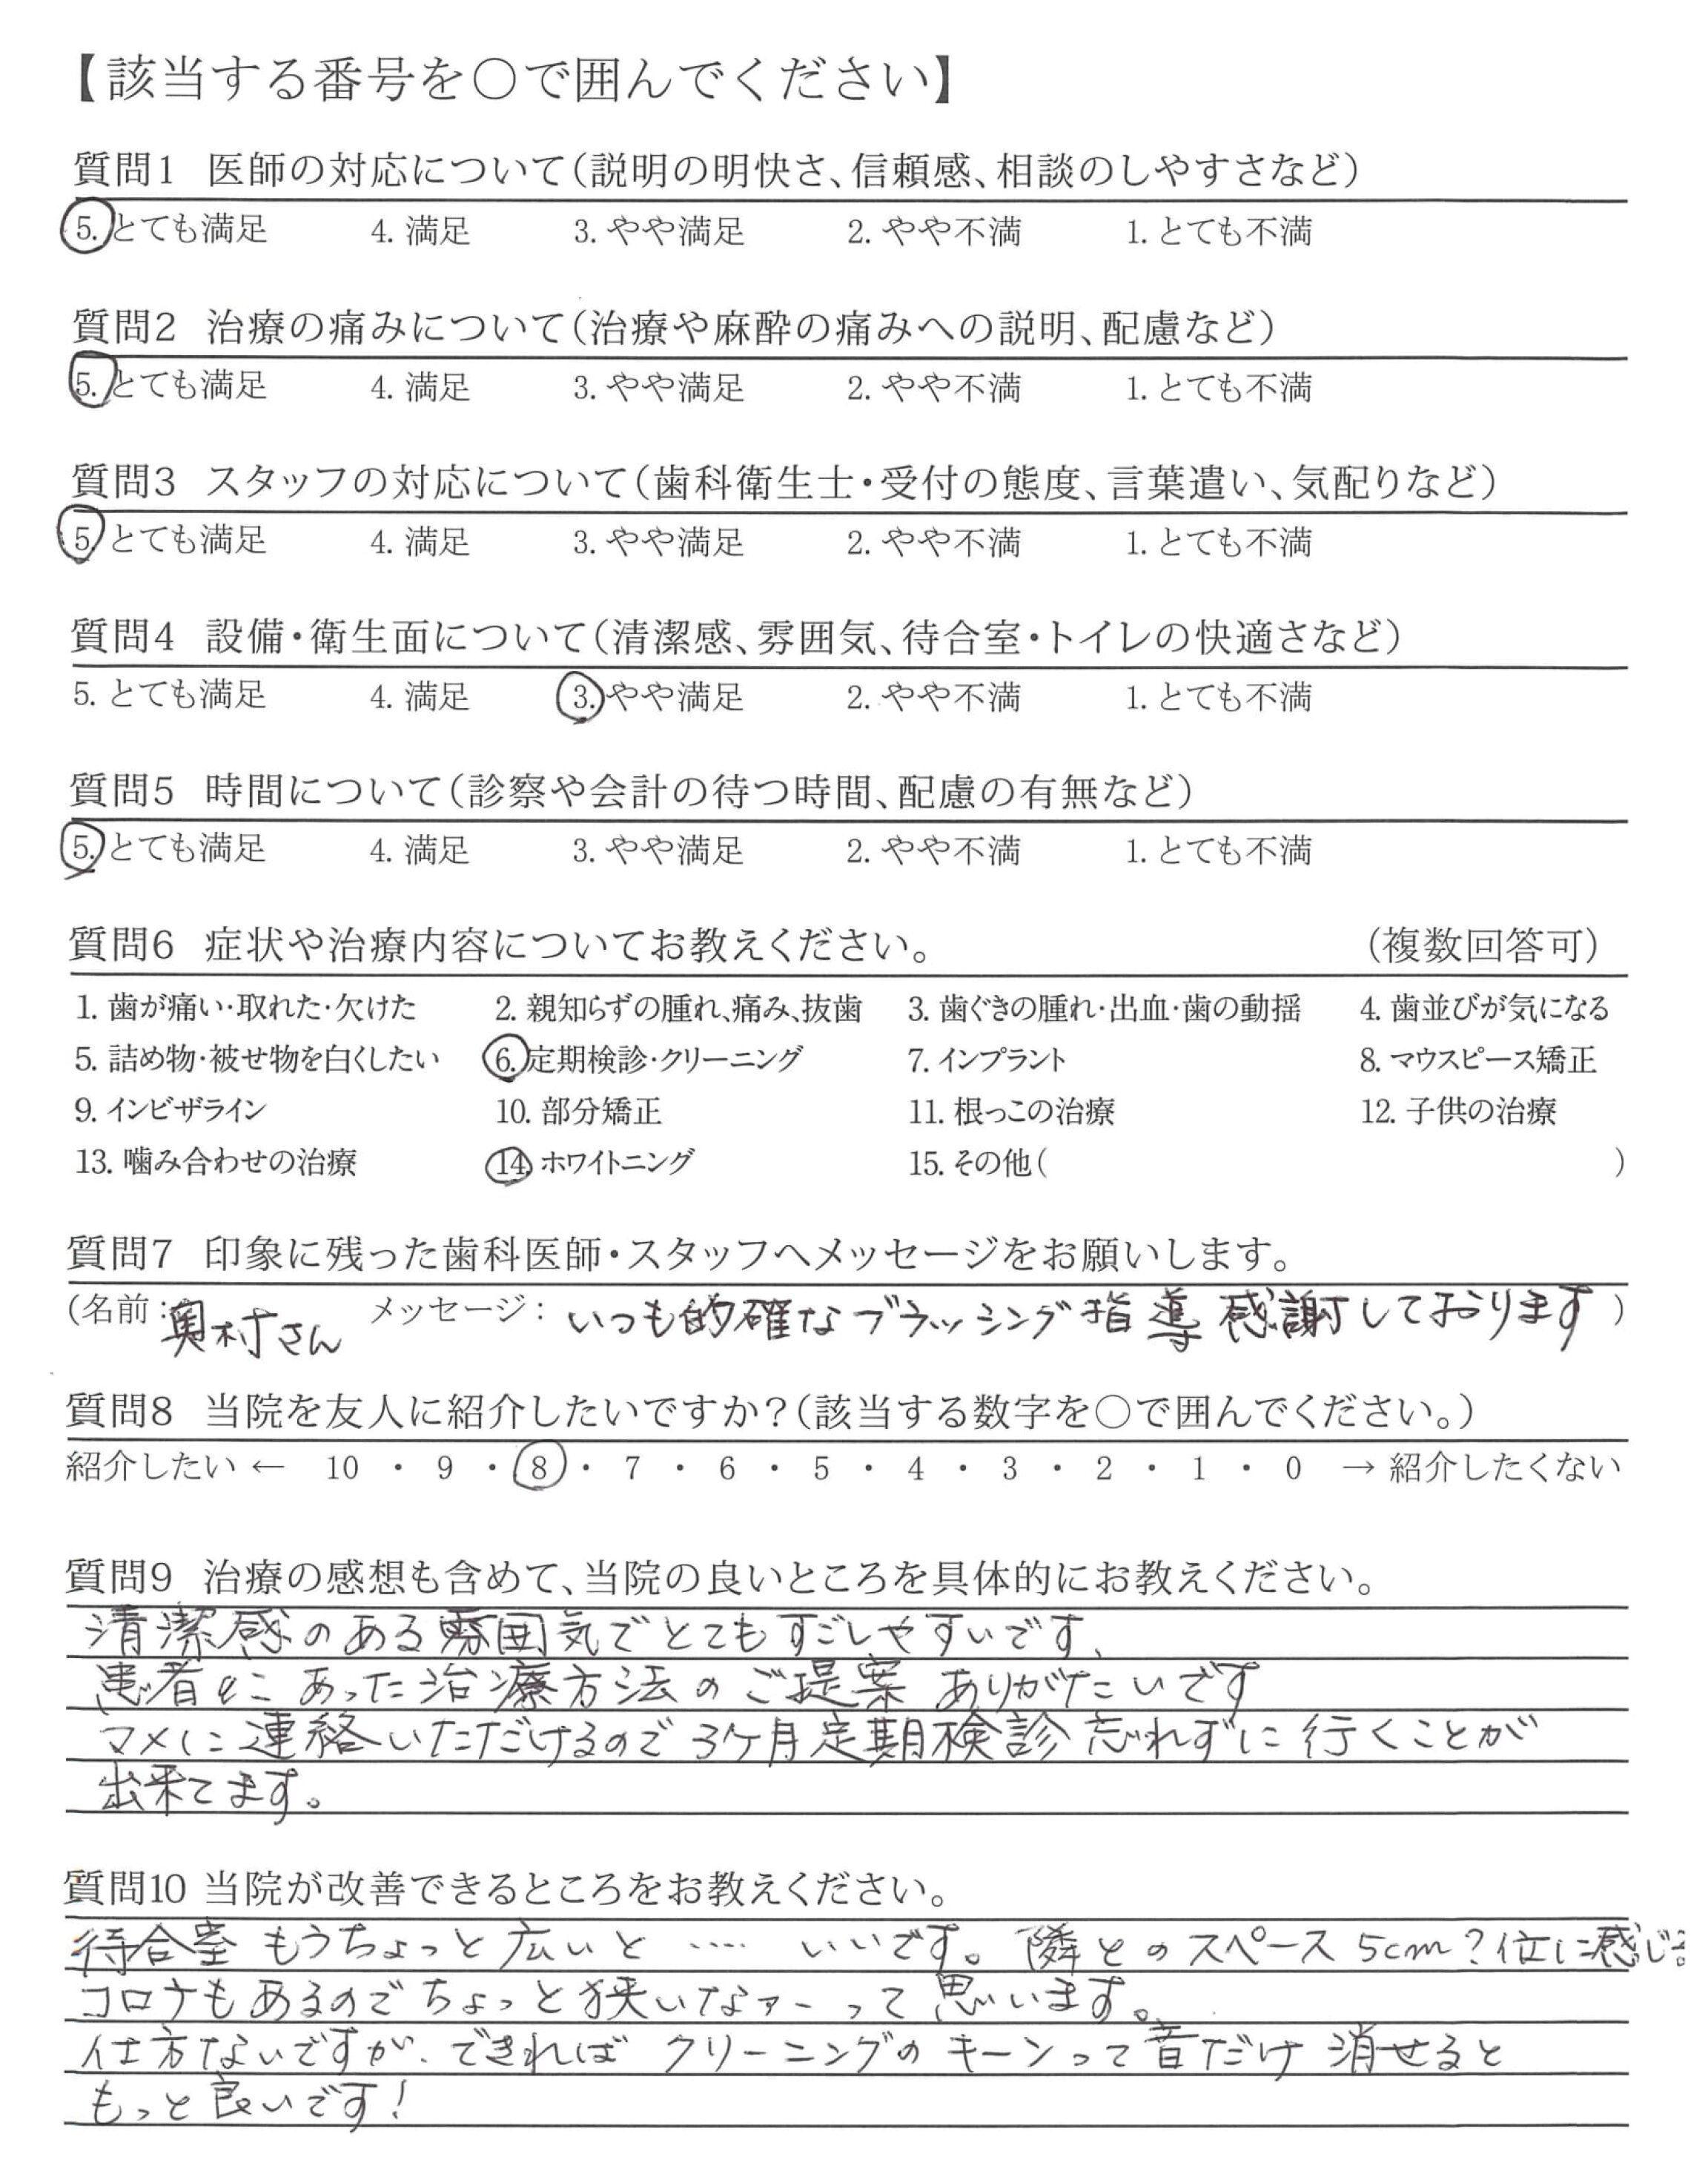 【該当する番号を〇で囲んでください】
質問1 医師の対応について(説明の明快さ、信頼感、相談のしやすさなど)
5. とても満足 4. 満足 3. やや満足 2. やや不満 1. とても不満
質問2 治療の痛みについて(治療や麻酔の痛みへの説明、配慮など)
5. とても満足 4. 満足 3. やや満足 2. やや不満 1. とても不満
質問3 スタッフの対応について(歯科衛生士・受付の態度、言葉遣い、気配りなど)
5. とても満足 4. 満足 3. やや満足 2. やや不満 1. とても不満
質問4 設備・衛生面について(清潔感、雰囲気、待合室・トイレの快適さなど)
5. とても満足 4. 満足 3. やや満足 2. やや不満 1. とても不満
質問5 時間について(診察や会計の待つ時間、配慮の有無など)
5. とても満足 4. 満足 3. やや満足 2. やや不満 1. とても不満
質問6 症状や治療内容についてお教えください。 (複数回答可)
1. 歯が痛い・取れた・欠けた 2. 親知らずの腫れ、痛み、抜歯 3. 歯ぐきの腫れ・出血・歯の動揺 4. 歯並びが気になる
5. 詰め物・被せ物を白くしたい 6. 定期検診・クリーニング 7. インプラント 8. マウスピース矯正
9. インビザライン 10. 部分矯正 11. 根っこの治療 12. 子供の治療
13. 噛み合わせの治療 14. ホワイトニング 15. その他( )
質問7 印象に残った歯科医師・スタッフへメッセージをお願いします。
(名前: 奥村さん メッセージ: いつも的確なブラッシング指導感謝しております )
質問8 当院を友人に紹介したいですか?(該当する数字を〇で囲んでください。)
紹介したい ← 10 ・ 9 ・ 8 ・ 7 ・ 6 ・ 5 ・ 4 ・ 3 ・ 2 ・ 1 ・ 0 → 紹介したくない
質問9 治療の感想も含めて、当院の良いところを具体的にお教えください。
清潔感のある雰囲気でとてもすごしやすいです、
患者にあった治療方法のご提案ありがたいです
マメに連絡いただけるので3ケ月定期検診忘れずに行くことが
出来てます。
質問10 当院が改善できるところをお教えください。
待合室もうちょっと広いと‥‥いいです。隣とのスペース5cm?位に感じる
コロナもあるのでちょっと狭いなァーって思います。
仕方ないですが、できればクリーニングのキーンって音だけ消せると
もっと良いです!